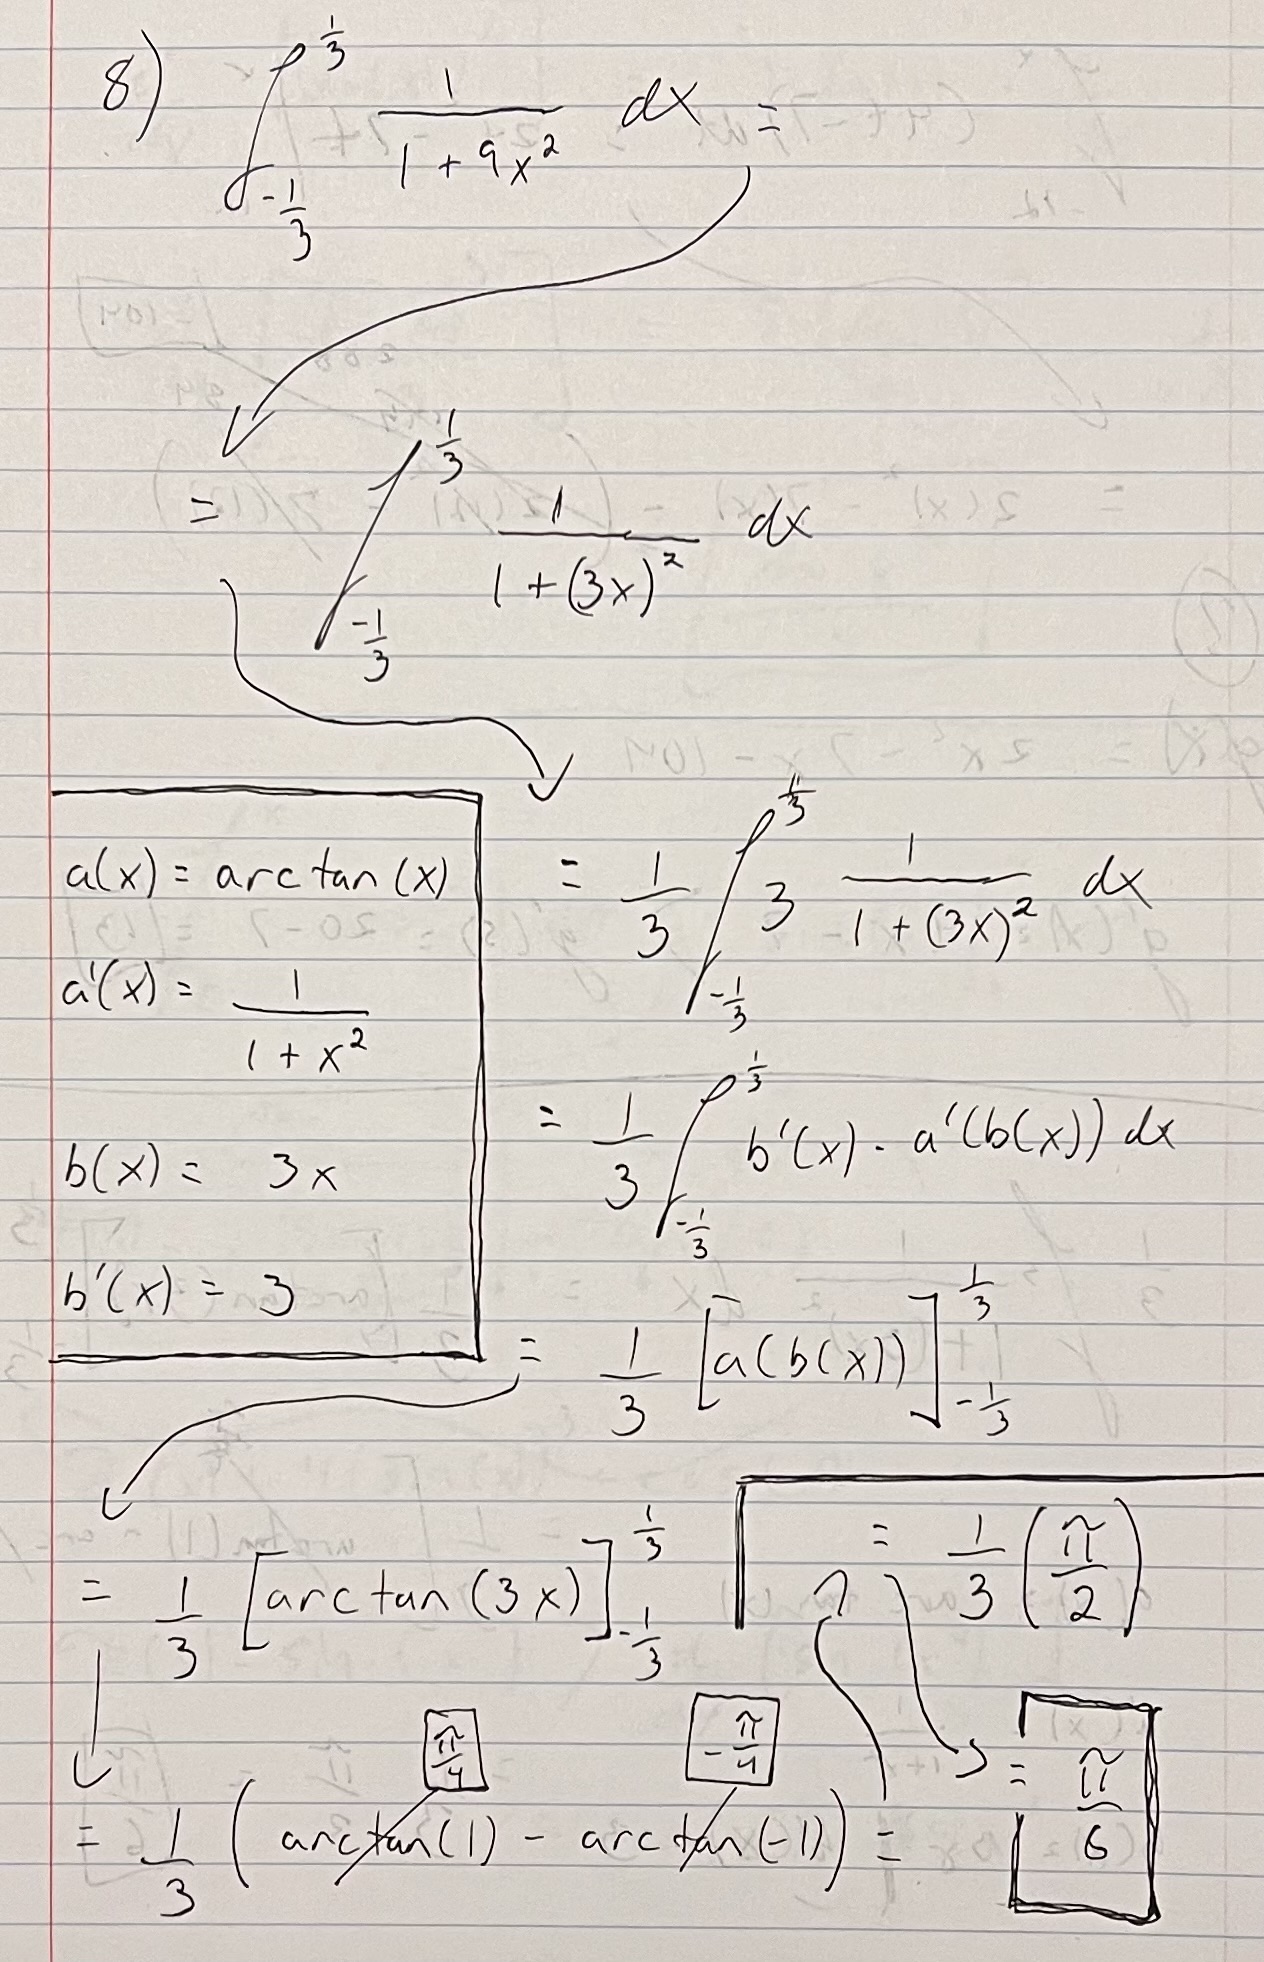 8) ∫_{-1/3}^{1/3} 1/(1 + 9x²) dx =
= ∫_{-1/3}^{1/3} 1/(1 + (3x)²) dx
a(x) = arctan(x)
a'(x) = 1/(1 + x²)
b(x) = 3x
b'(x) = 3
= 1/3 ∫_{-1/3}^{1/3} 3 1/(1 + (3x)²) dx
= 1/3 ∫_{-1/3}^{1/3} b'(x) · a'(b(x)) dx
= 1/3 [a(b(x))]_{-1/3}^{1/3}
= 1/3 [arctan(3x)]_{-1/3}^{1/3}
π/4 -π/4
= 1/3 (arctan(1) - arctan(-1)) =
= 1/3 (π/2)
= π/6